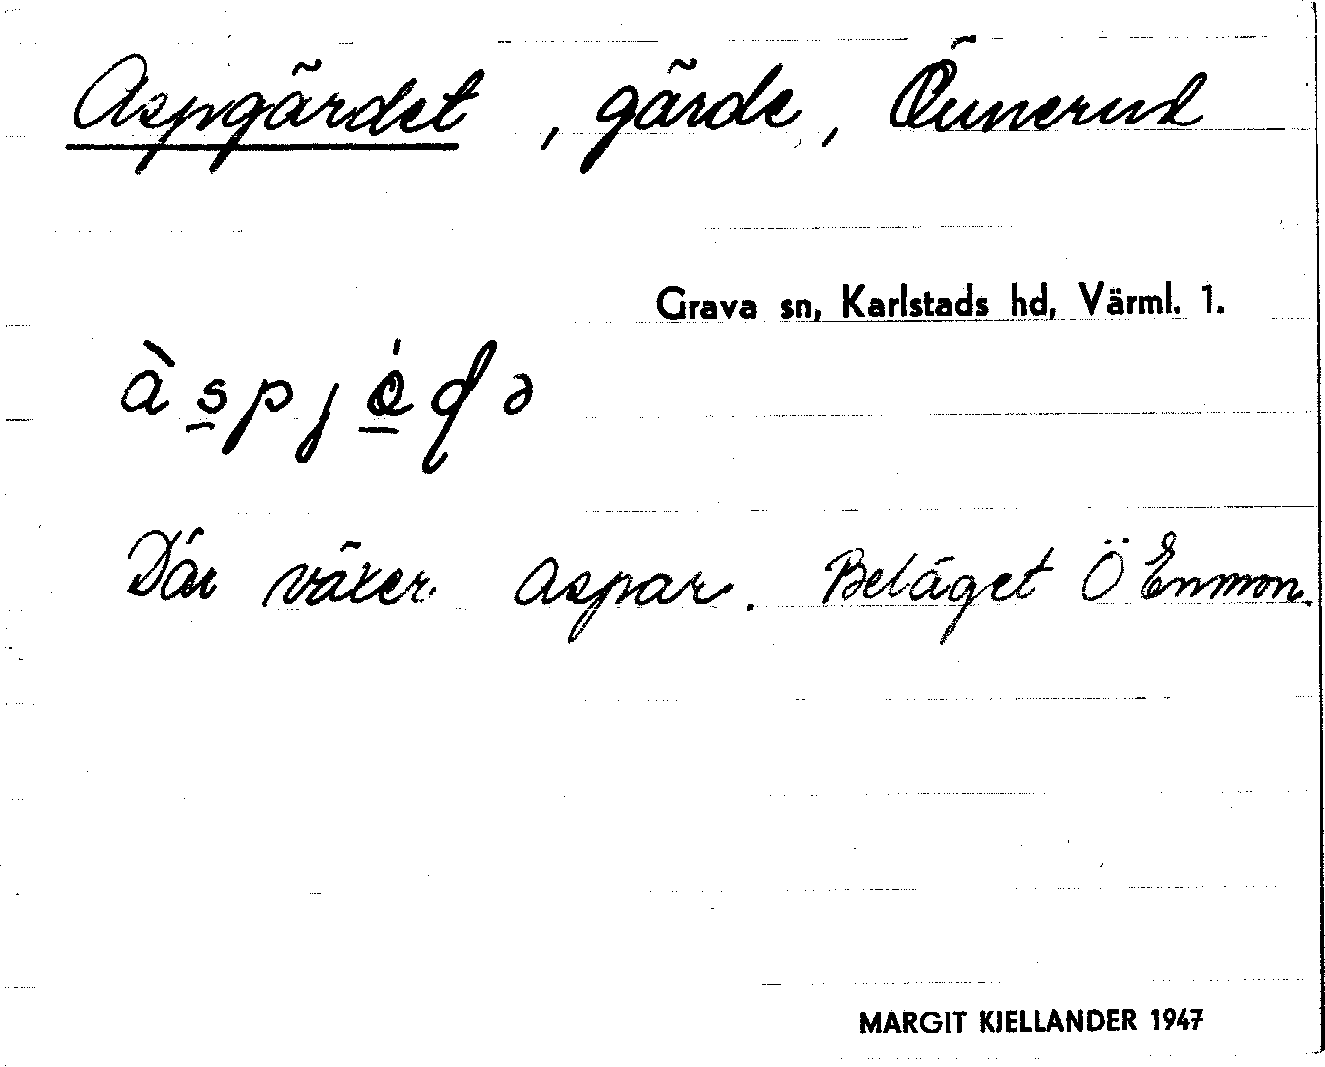 Aspgärdet, gärde, Önnerud
Grava sn, Karlstads hd, Värml. 1.
Där växer aspar. Beläget Ö Enmon.
MARGIT KJELLANDER 1947